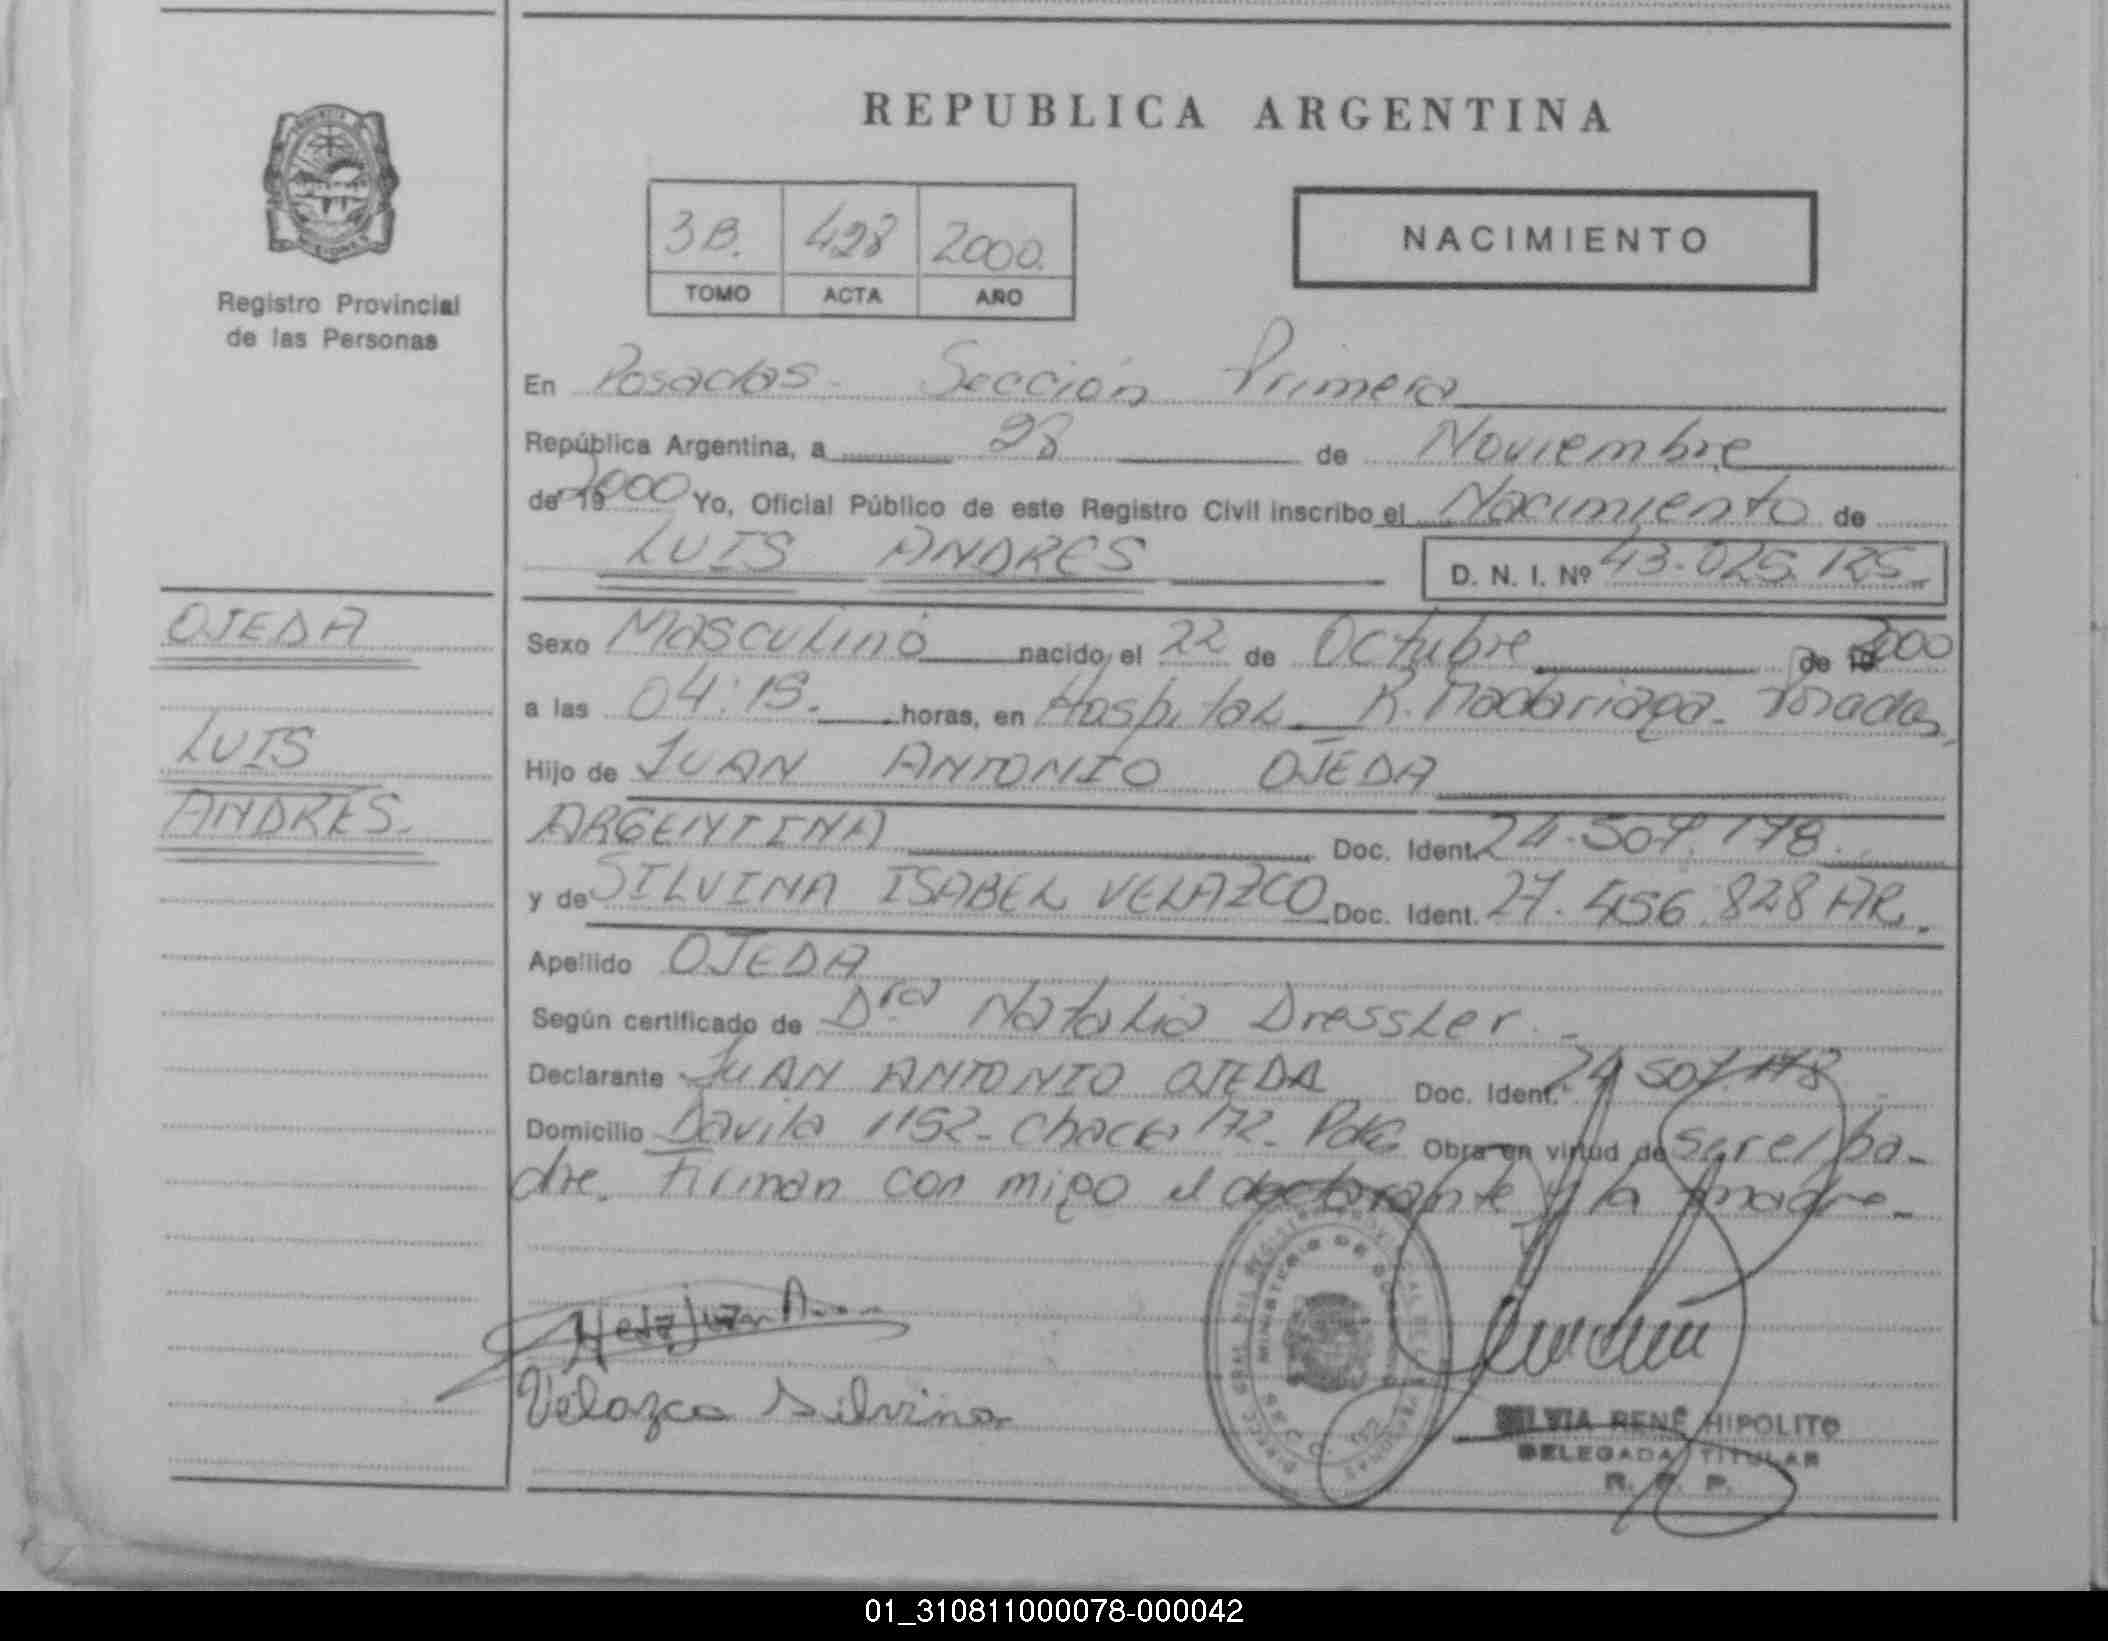 REPUBLICA ARGENTINA
3B. 428 2000.
TOMO ACTA AÑO
NACIMIENTO
Registro Provincial
de las Personas
En Posadas - Sección Primera
República Argentina, a 28 de Noviembre
de 19 2000 Yo, Oficial Público de este Registro Civil inscribo el Nacimiento de
LUIS ANDRES D. N. I. Nº 43.025.125
OJEDA
LUIS
ANDRES.
Sexo Masculino nacido el 22 de Octubre de 2000
a las 04:15. horas, en Hospital R. Madariaga - Posadas
Hijo de JUAN ANTONIO OJEDA
ARGENTINA Doc. Ident. 24.507.178.
y de SILVINA ISABEL VELAZCO Doc. Ident. 27.456.828 AR.
Apellido OJEDA
Según certificado de Dra Natalia Dressler.-
Declarante JUAN ANTONIO OJEDA Doc. Ident. 24.507.178
Domicilio Davila 1152- Chacra 172- Obra en virtud de ser el pa-
dre. Firman con migo el declarante y la madre.-
Velazco Silvina
SILVIA RENÉ HIPOLITO
DELEGADA TITULAR
R. P. P.
01_310811000078-000042